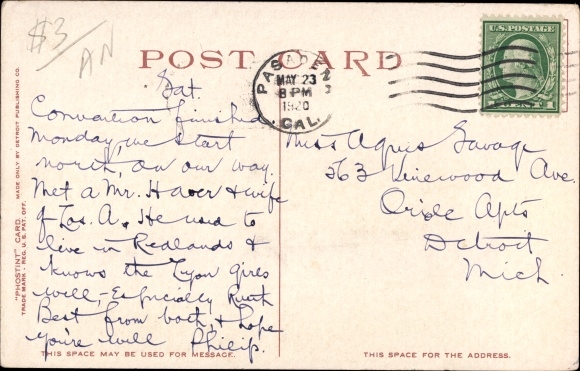 $3
AN
POST CARD
U.S. POSTAGE
1
PASADENA
MAY 23
8 PM
1920
CAL.
Sat.
Convention finished
Monday, we start
north, on our way.
Met a Mr. & wife
of Los. A. He used to
live in Redlands &
knows the Lyon girls
well, - Especially Ruth
Best from both, & hope
you're well Philip.
Miss Agnes Savage
263 Ave.
Apts
Detroit
Mich
"PHOSTINT" CARD. MADE ONLY BY DETROIT PUBLISHING CO.
TRADE MARK - REG. U.S. PAT. OFF.
THIS SPACE MAY BE USED FOR MESSAGE.
THIS SPACE FOR THE ADDRESS.